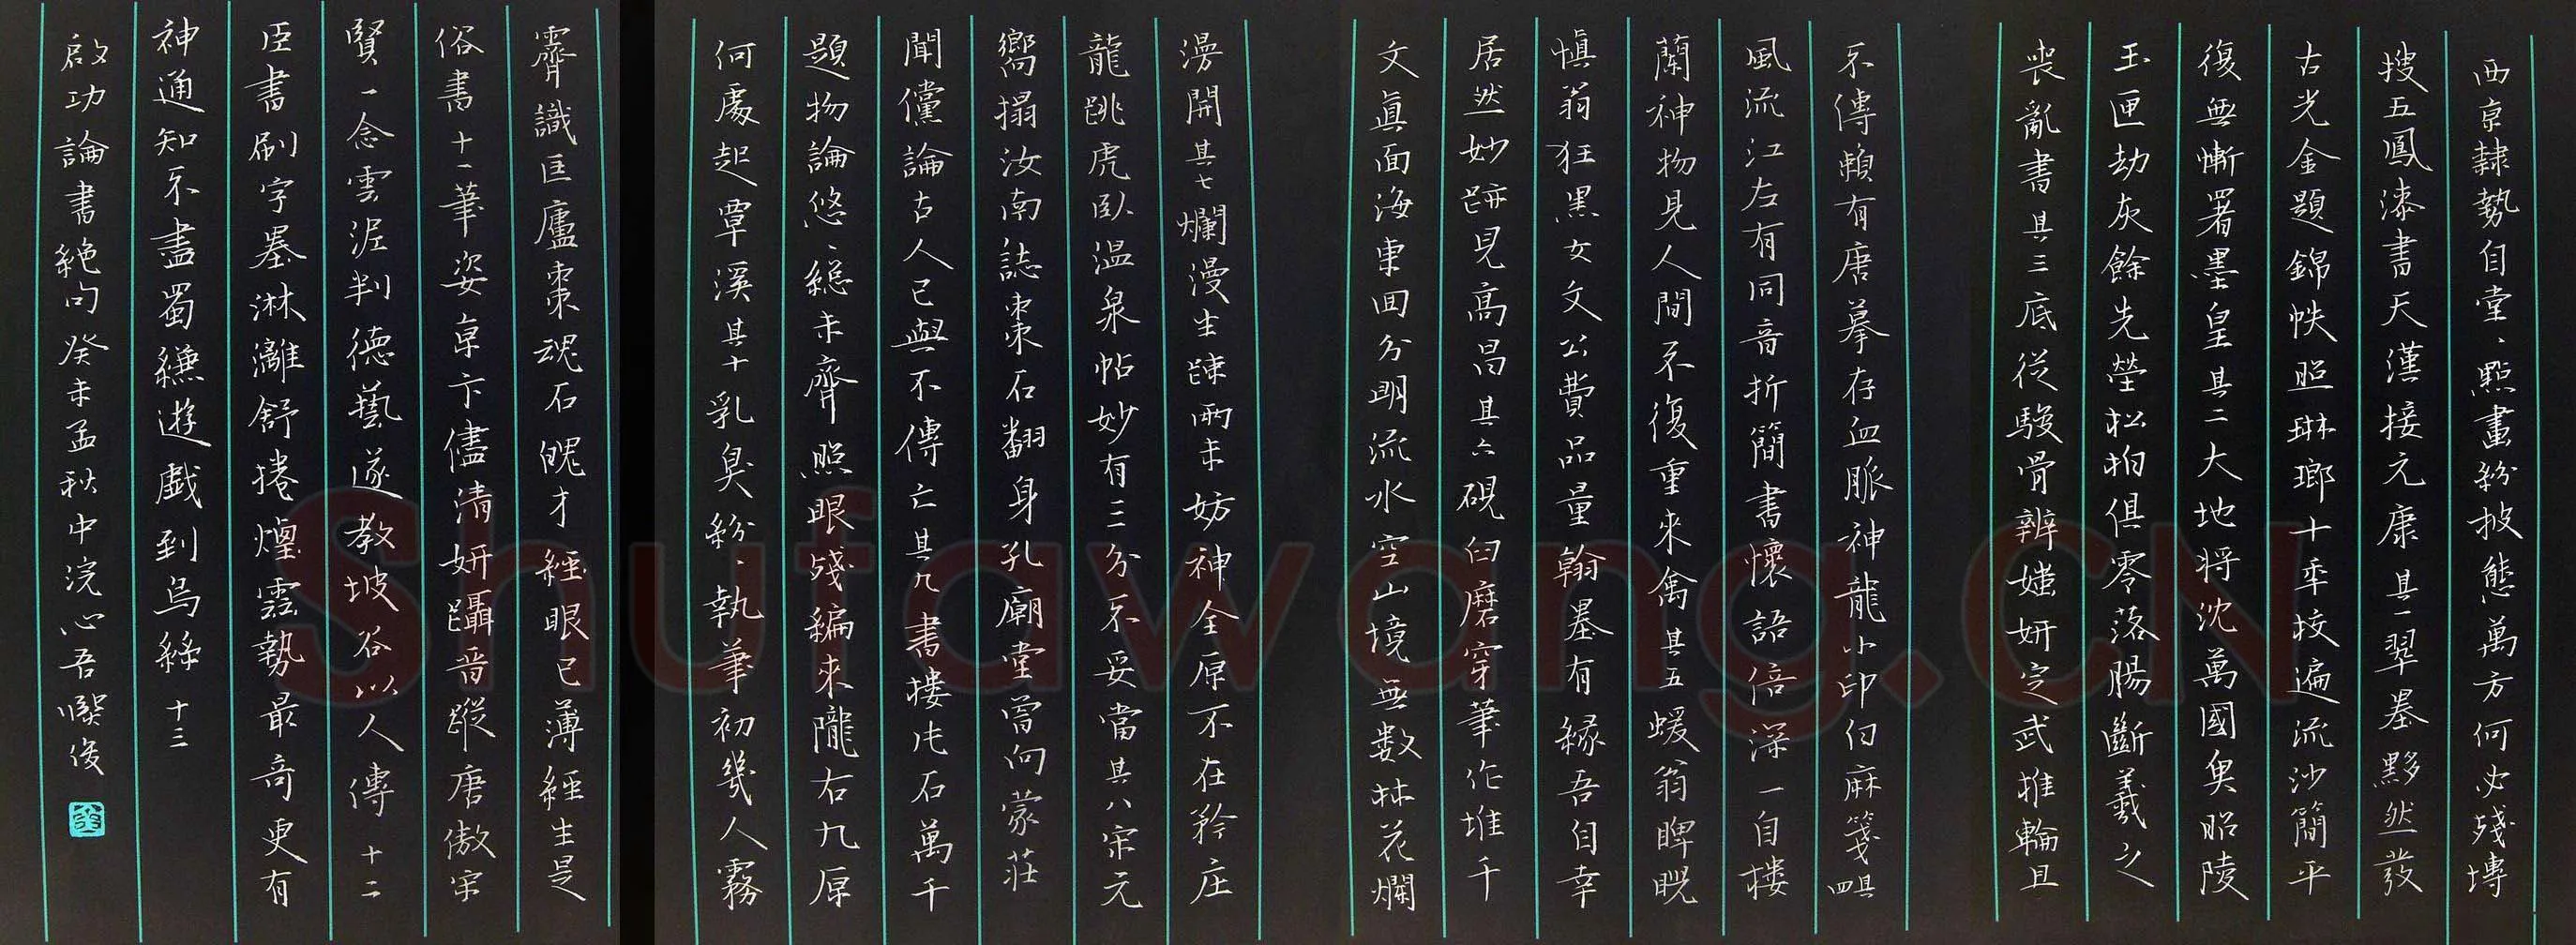 西京隸勢自堂、點畫紛披態萬方何必殘塼
搜五鳳漆書天漢接元康其一翠墨黟然發
古光金題錦帙照琳瑯十年校遍流沙簡平
復無慚署墨皇其二大地將沈萬國魚昭陵
玉匣劫灰餘先塋松柏俱零落腸斷羲之
喪亂書其三底從駿骨辨媸妍定武推輪且
不傳賴有唐摹存血脈神龍小印白麻箋其四
風流江左有同音折簡書懷語倍深一自樓
蘭神物見人間不復重來禽其五蝯翁睥睨
慎翁狂黑女文公費品量翰墨有緣吾自幸
居然妙跡見高昌其六硯臼磨穿筆作堆千
文真面海東回分明流水空山境無數林花爛
漫開其七爛漫生疎兩未妨神全原不在矜莊
龍跳虎臥溫泉帖妙有三分不妥當其八宋元
嚮搨汝南誌棗石翻身孔廟堂曾向蒙莊
聞儻論古人已與不傳亡其九書樓片石萬千
題物論悠、總未齊照眼殘編來隴右九原
何處起覃溪其十乳臭紛、執筆初幾人霧
霽識匡廬棗魂石魄才經眼已薄經生是
俗書十一筆姿京卞儘清妍躡晉蹤唐傲宋
賢一念雲泥判德藝遂教坡谷以人傳十二
臣書刷字墨淋灕舒捲煙雲勢最奇更有
神通知不盡蜀縑遊戲到烏絲十三
啟功論書絕句癸未孟秋中浣心吾暌俊
Shufawang.CN